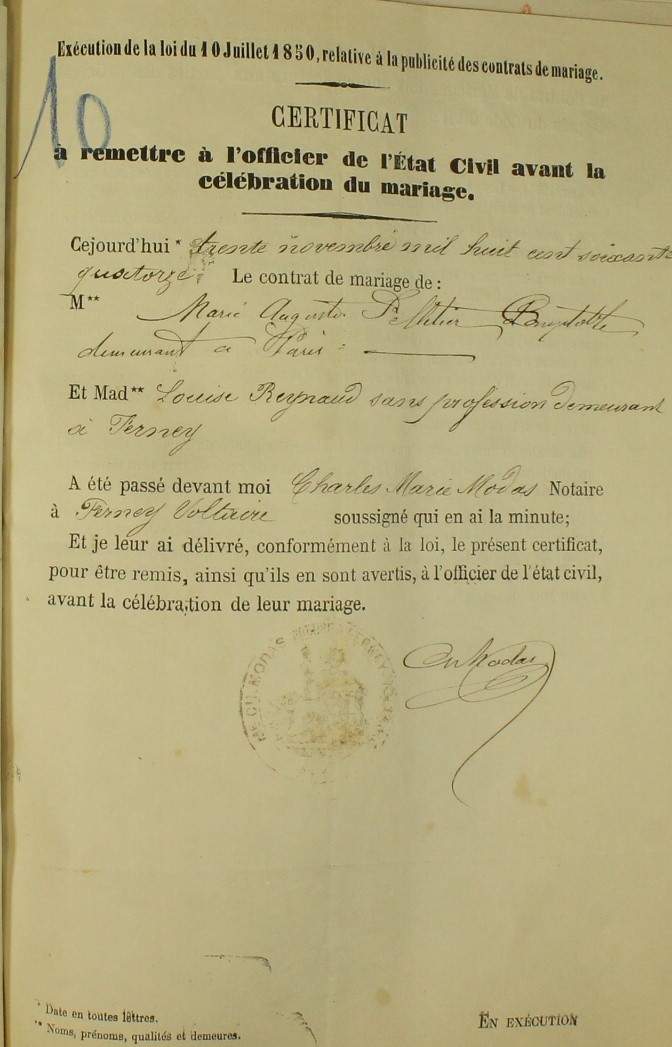 Exécution de la loi du 10 Juillet 1850, relative à la publicité des contrats de mariage.
10
CERTIFICAT
à remettre à l'officier de l'État Civil avant la
célébration du mariage.
Cejourd'hui * trente novembre mil huit cent soixante
quatorze Le contrat de mariage de :
M** Marie Auguste Pelletier Comptable
demeurant à Paris :
Et Mad** Louise Reynaud sans profession demeurant
à Ferney
A été passé devant moi Charles Marie Modas Notaire
à Ferney Voltaire soussigné qui en ai la minute;
Et je leur ai délivré, conformément à la loi, le présent certificat,
pour être remis, ainsi qu'ils en sont avertis, à l'officier de l'état civil,
avant la célébration de leur mariage.
Ch Modas
CH. MODAS
* Date en toutes lettres.
** Noms, prénoms, qualités et demeures.
EN EXÉCUTION